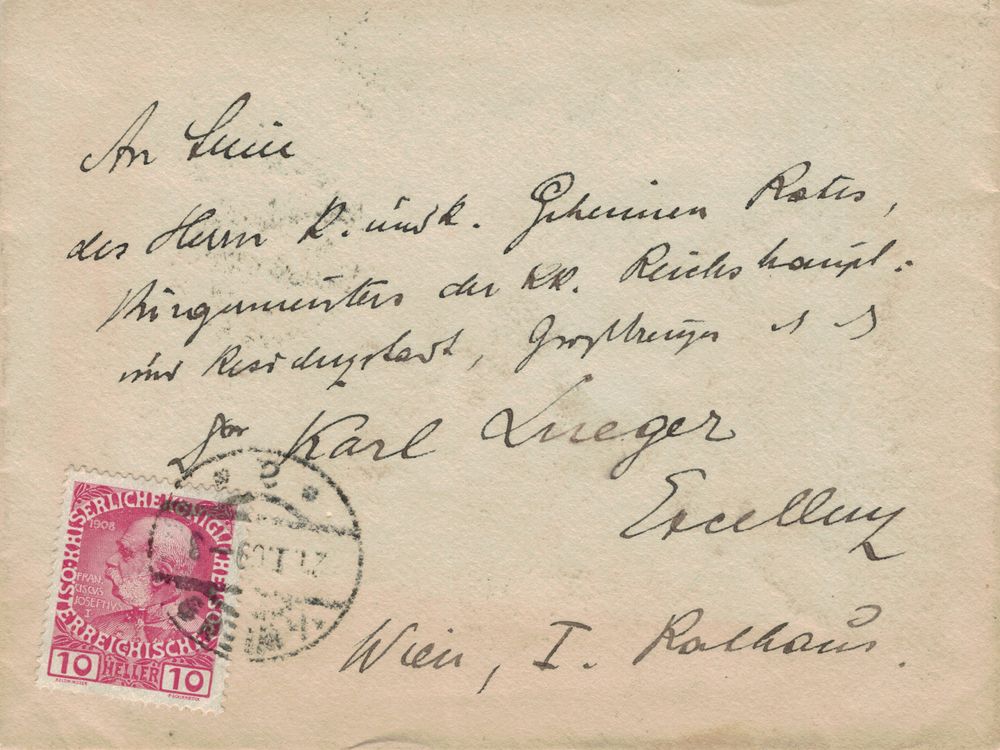 An Seine
des Herrn k. und k. Geheimen Rates,
Bürgermeisters der k.k. Reichshaupt-
und Residenzstadt,
Dr Karl Lueger
Excellenz
Wien, I. Rathaus.
KAISERLICHE KÖNIGLICHE ÖSTERREICHISCHE
1908
FRAN
CISCVS
IOSEPHVS
I
10 HELLER 10